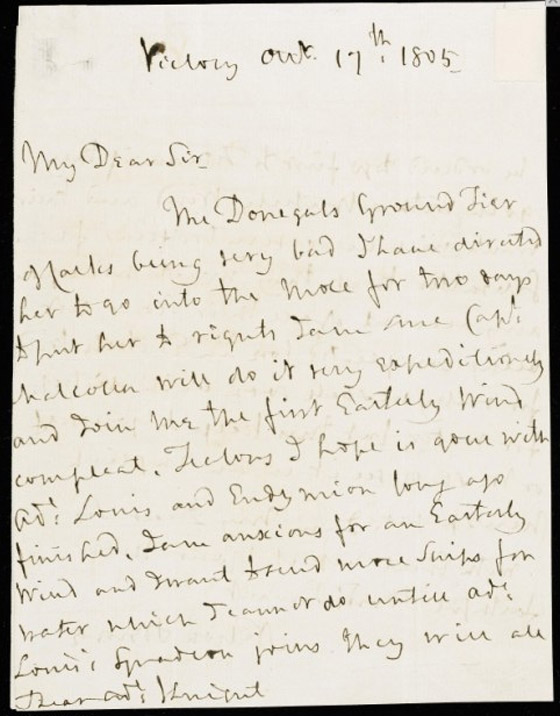 Victory Octr. 17th. 1805
My Dear Sir
The Donegals Ground Tier
being very bad I have directed
her to go into the Mole for two days
to put her to rights I am sure Capt:
Malcolm will do it very expeditiously
and Join Me the first Easterly Wind
compleat. I hope is gone with
Adl: Louis and Endymion long ago
finished, I am anxious for an Easterly
Wind and I want to send more Ships for
water which I cannot do untill Adl:
Louis's Squadron joins They will all
Adl: Knight